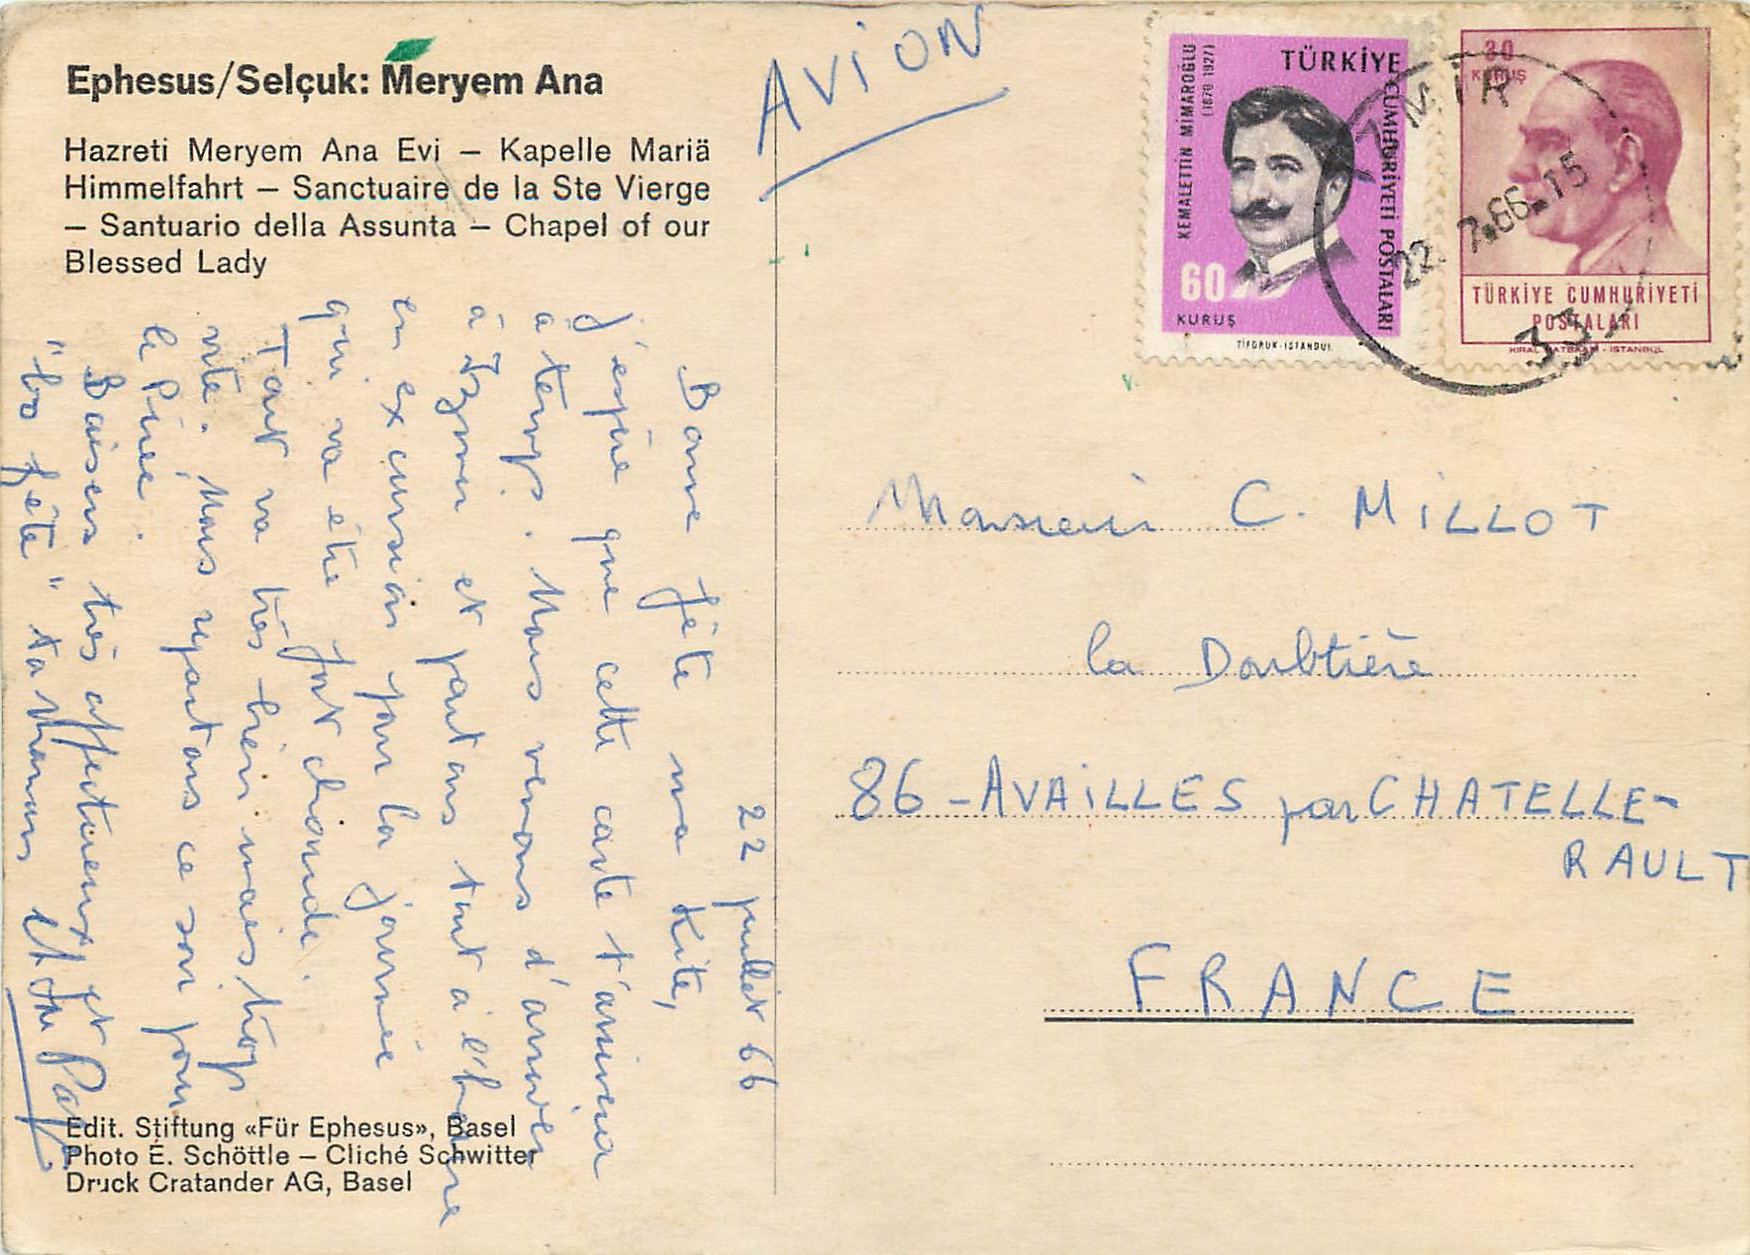 Ephesus/Selçuk: Meryem Ana
Hazreti Meryem Ana Evi – Kapelle Mariä
Himmelfahrt – Sanctuaire de la Ste Vierge
– Santuario della Assunta – Chapel of our
Blessed Lady
AVION
KEMALETTİN MİMAROĞLU
(1870 1927)
TÜRKİYE
CUMHURİYETİ POSTALARI
60
KURUŞ
TİFDRUK-İSTANBUL
30
KURUŞ
TÜRKİYE CUMHURİYETİ
POSTALARI
KIRAL MATBAASI - İSTANBUL
İZMİR
22. 7.66.15
33
22 juillet 66
Bonne fête ma Kite,
j'espère que cette carte t'arrivera
à temps. Nous venons d'arriver
à Izmir et partons tout à l'heure
en excursion pour la journée
qui va être fort chaude.
Tout va très bien mais trop
vite. Nous repartons ce soir pour
le Pirée.
Baisers très affectueux et
"bo fête" ta Maman et ton Papa
Monsieur C. MILLOT
la Doubtière
86 - AVAILLES par CHATELLE-
RAULT
FRANCE
Edit. Stiftung «Für Ephesus», Basel
Photo E. Schöttle – Cliché Schwitter
Druck Cratander AG, Basel